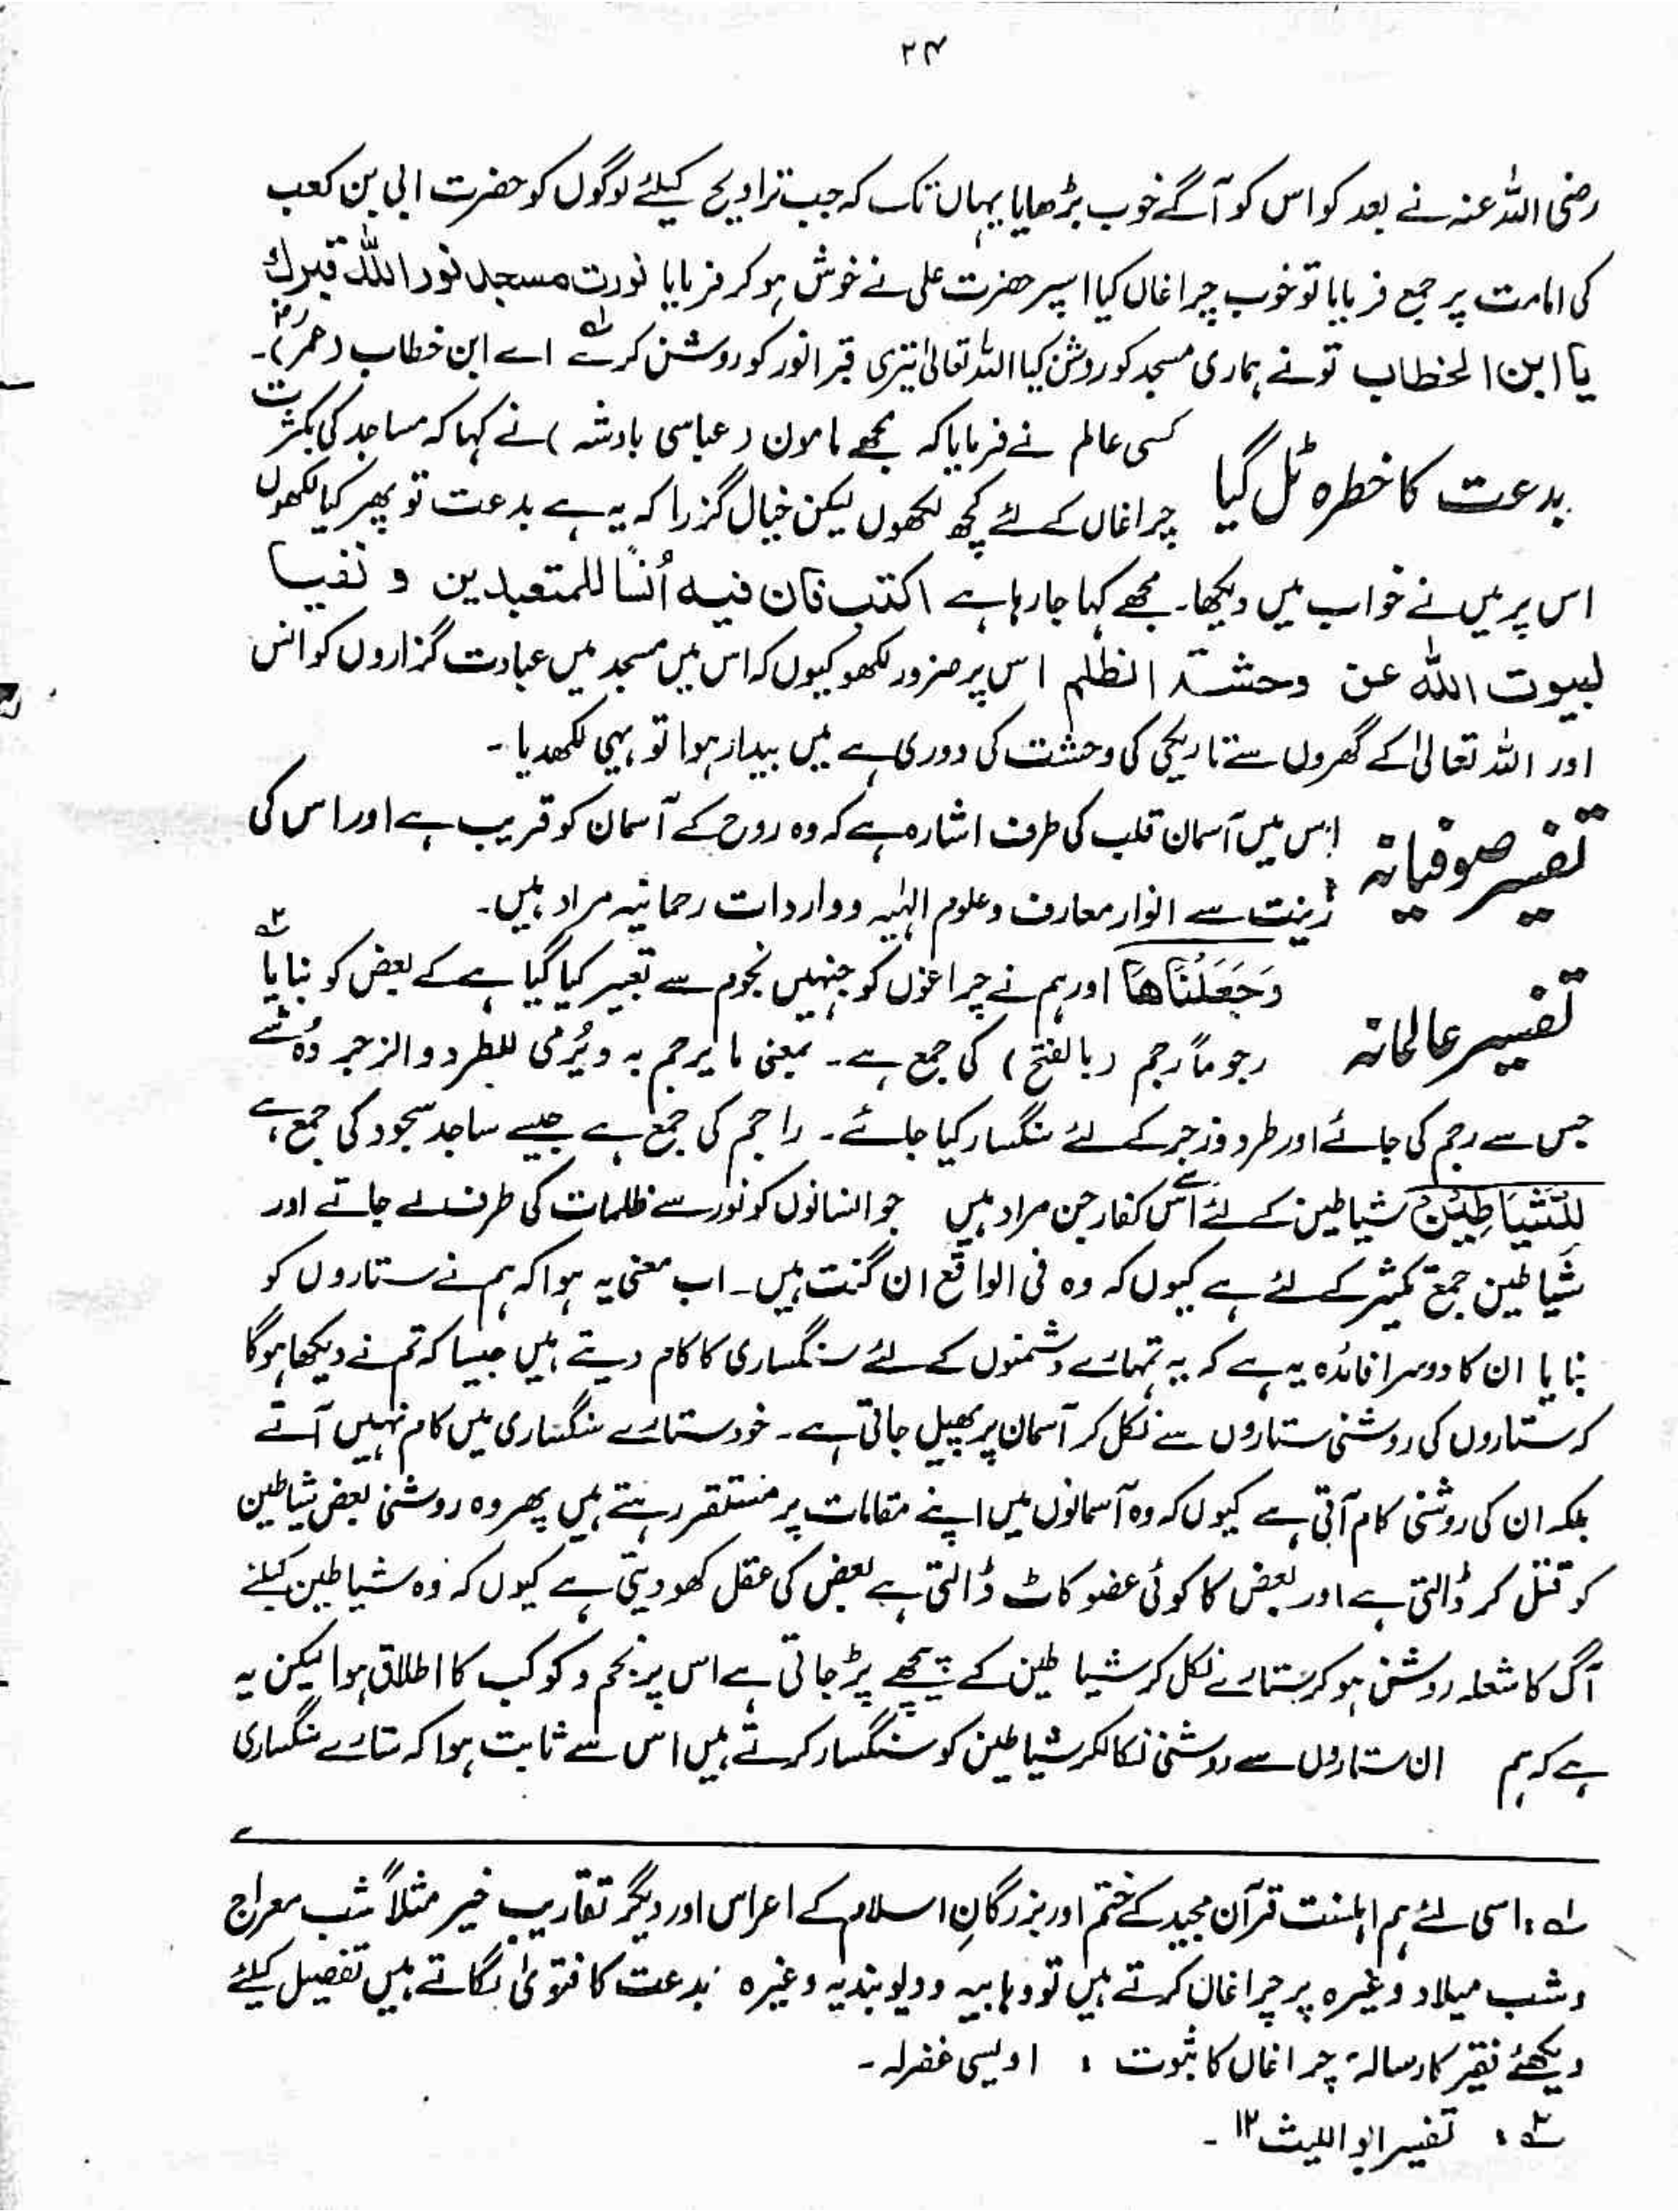 ۲۴
رضی اللہ عنہ نے بعد کو اس کو آگے خوب بڑھایا یہاں تک کہ جب تراویح کیلئے لوگوں کو حضرت ابی بن کعب
کی امامت پر جمع فرمایا تو خوب چراغاں کیا اسپر حضرت علی نے خوش ہو کر فرمایا نورت مسجدنا نور اللہ قبرک
یا ابن الخطاب تونے ہماری مسجد کو روشن کیا اللہ تعالیٰ تیری قبر انور کو روشن کرے لہ اے ابن خطاب (عمرؓ)۔
بدعت کا خطرہ ٹل گیا کسی عالم نے فرمایا کہ مجھے مامون (عباسی بادشہ) نے کہا کہ مساجد کی بکثرت
چراغاں کے لئے کچھ لکھوں لیکن خیال گزرا کہ یہ ہے بدعت تو پھر کیا لکھوں
اس پر میں نے خواب میں دیکھا۔ مجھے کہا جا رہا ہے اکتب فان فیہ اُنساً للمتعبدین و نفیا
لبیوت اللہ عن وحشۃ الظلم اس پر ضرور لکھو کیوں کہ اس میں مسجد میں عبادت گزاروں کو انس
اور اللہ تعالیٰ کے گھروں سے تاریکی کی وحشت کی دوری ہے میں بیدار ہوا تو یہی لکھدیا۔
تفسیر صوفیانہ اس میں آسمان قلب کی طرف اشارہ ہے کہ وہ روح کے آسمان کو قریب ہے اور اس کی
زینت سے انوار معارف و علوم الہٰیہ و واردات رحمانیہ مراد ہیں۔
تفسیر عالمانہ وَجَعَلْنَاهَا اور ہم نے چراغوں کو جنہیں نجوم سے تعبیر کیا گیا ہے کے بعض کو بنایا ۲ہ
رجوماً رجم (بالفتح) کی جمع ہے۔ بمعنی ما یرجم بہ ویُرمی للطرد والزجر وُہ شے
جس سے رجم کی جائے اور طرد و زجر کے لئے سنگسار کیا جائے۔ راجم کی جمع ہے جیسے ساجد سجود کی جمع ہے
لِلشَّيَاطِيْنِ شیاطین کے لئے اس سے کفار جن مراد ہیں جو انسانوں کو نور سے ظلمات کی طرف لے جاتے اور
شیاطین جمع تکثیر کے لئے ہے کیوں کہ وہ فی الواقع ان گنت ہیں۔ اب معنی یہ ہوا کہ ہم نے ستاروں کو
بنایا ان کا دوسرا فائدہ یہ ہے کہ یہ تمہارے دشمنوں کے لئے سنگساری کا کام دیتے ہیں جیسا کہ تم نے دیکھا ہوگا
کہ ستاروں کی روشنی ستاروں سے نکل کر آسمان پر پھیل جاتی ہے۔ خود ستارے سنگساری میں کام نہیں آتے
بلکہ ان کی روشنی کام آتی ہے کیوں کہ وہ آسمانوں میں اپنے مقامات پر مستقر رہتے ہیں پھر وہ روشنی بعض شیاطین
کو قتل کر ڈالتی ہے اور بعض کا کوئی عضو کاٹ ڈالتی ہے بعض کی عقل کھو دیتی ہے کیوں کہ وہ شیاطین کیلئے
آگ کا شعلہ روشن ہو کر ستارے نکل کر شیاطین کے پیچھے پڑ جاتی ہے اس پر نجم و کوکب کا اطلاق ہوا لیکن یہ
ہے کہ ہم ان ستاروں سے روشنی نکالکر شیاطین کو سنگسار کرتے ہیں اس سے ثابت ہوا کہ ستارے سنگساری
لہ: اسی لئے ہم اہلسنت قرآن مجید کے ختم اور بزرگانِ اسلام کے اعراس اور دیگر تقاریب خیر مثلاً شب معراج
و شب میلاد وغیرہ پر چراغاں کرتے ہیں تو وہابیہ و دیوبندیہ وغیرہ بدعت کا فتویٰ لگاتے ہیں تفصیل کیلئے
دیکھئے فقیر کا رسالہ چراغاں کا ثبوت: اویسی غفرلہ۔
۲ہ: تفسیر ابو اللیث ۱۲۔